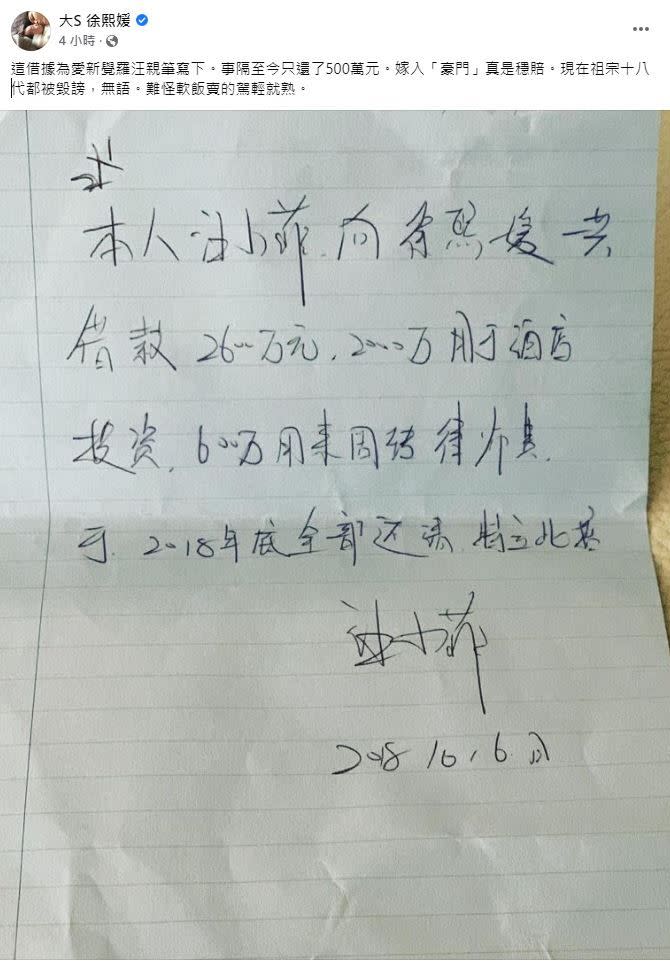 大S 徐熙媛
4 小時
這借據為愛新覺羅汪親筆寫下。事隔至今只還了500萬元。嫁入「豪門」真是穩賠。現在祖宗十八
代都被毀謗,無語。難怪軟飯賣的駕輕就熟。
本人汪小菲.向徐熙媛共
借款 2600万元.2000万用于酒店
投资.600万用来周转律师费.
于.2018年底全部还清.特立此据
汪小菲
2018